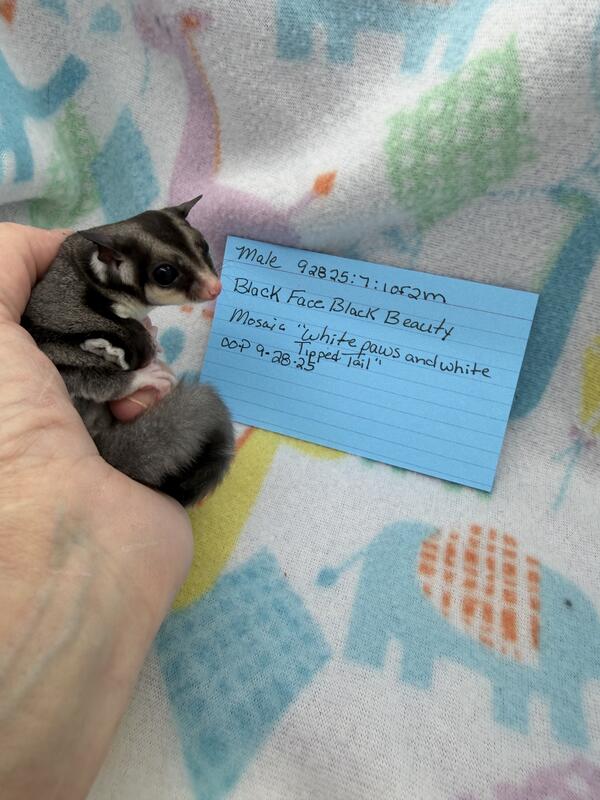 Male 92825:7:1of2m
Black Face Black Beauty
Mosaic "white paws and white
Tipped Tail"
OOP 9-28-25